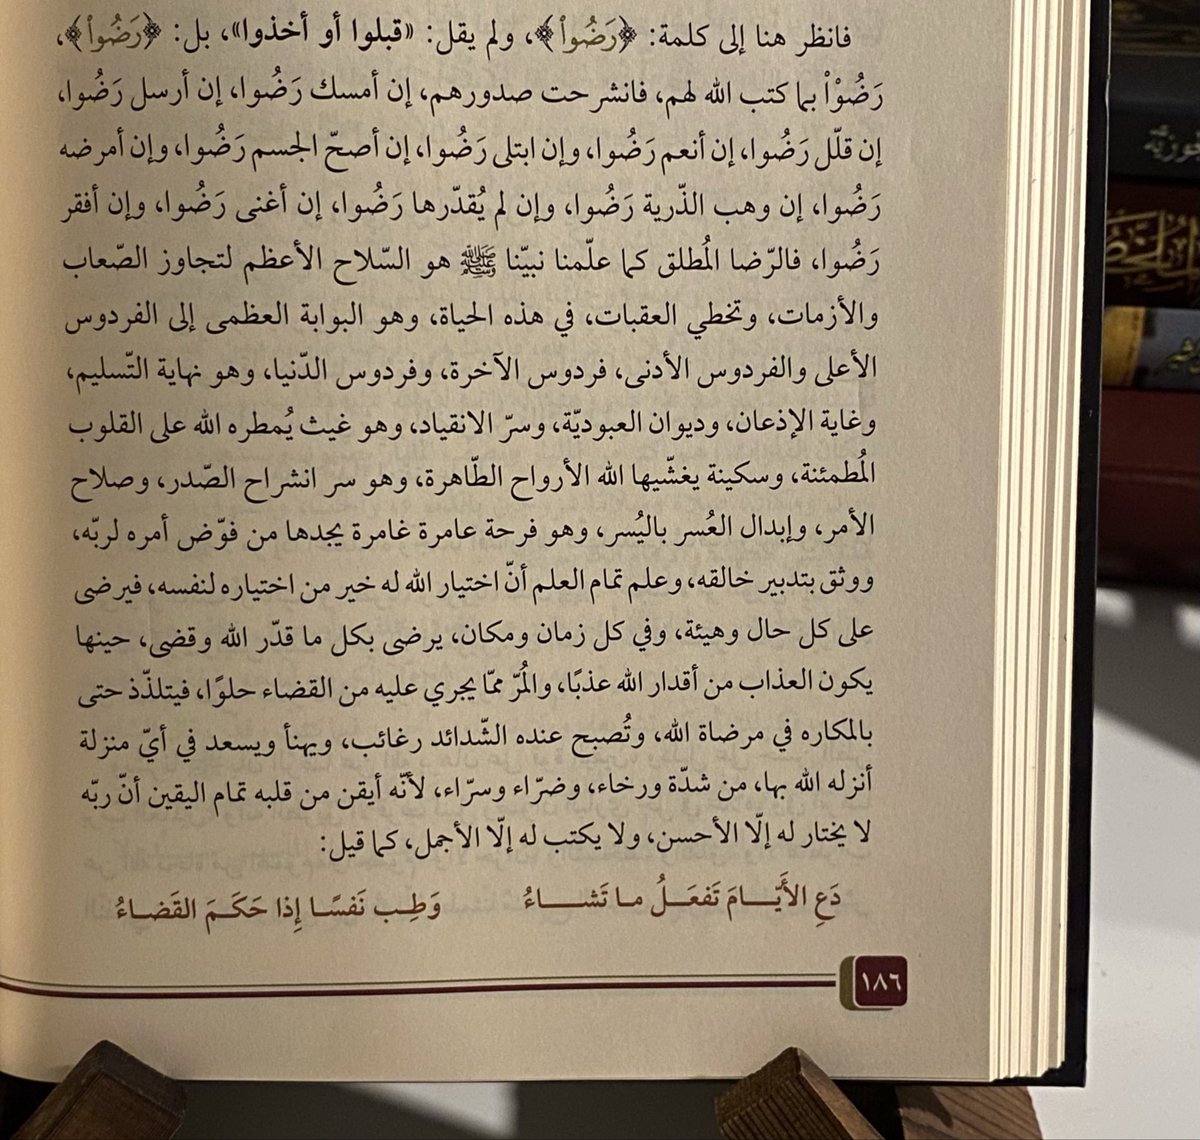 فانظر هنا إلى كلمة: ﴿رَضُواْ﴾، ولم يقل: «قبلوا أو أخذوا»، بل: ﴿رَضُواْ﴾،
رَضُوْاْ بما كتب الله لهم، فانشرحت صدورهم، إن أمسك رَضُوا، إن أرسل رَضُوا،
إن قلّل رَضُوا، إن أنعم رَضُوا، وإن ابتلى رَضُوا، إن أصحّ الجسم رَضُوا، وإن أمرضه
رَضُوا، إن وهب الذّرية رَضُوا، وإن لم يُقدّرها رَضُوا، إن أغنى رَضُوا، وإن أفقر
رَضُوا، فالرّضا المُطلق كما علّمنا نبيّنا ﷺ هو السّلاح الأعظم لتجاوز الصّعاب
والأزمات، وتخطي العقبات، في هذه الحياة، وهو البوابة العظمى إلى الفردوس
الأعلى والفردوس الأدنى، فردوس الآخرة، وفردوس الدّنيا، وهو نهاية التّسليم،
وغاية الإذعان، وديوان العبوديّة، وسرّ الانقياد، وهو غيث يُمطره الله على القلوب
المُطمئنة، وسكينة يغشّيها الله الأرواح الطّاهرة، وهو سر انشراح الصّدر، وصلاح
الأمر، وإبدال العُسر باليُسر، وهو فرحة عامرة غامرة يجدها من فوّض أمره لربّه،
ووثق بتدبير خالقه، وعلم تمام العلم أنّ اختيار الله له خير من اختياره لنفسه، فيرضى
على كل حال وهيئة، وفي كل زمان ومكان، يرضى بكل ما قدّر الله وقضى، حينها
يكون العذاب من أقدار الله عذبًا، والمُرّ ممّا يجري عليه من القضاء حلوًا، فيتلذّذ حتى
بالمكاره في مرضاة الله، وتُصبح عنده الشّدائد رغائب، ويهنأ ويسعد في أيّ منزلة
أنزله الله بها، من شدّة ورخاء، وضرّاء وسرّاء، لأنّه أيقن من قلبه تمام اليقين أنّ ربّه
لا يختار له إلّا الأحسن، ولا يكتب له إلّا الأجمل، كما قيل:
دَعِ الأَيّـــامَ تَفعَـــلُ مـا تَشـــاءُ وَطِـب نَفسًـا إِذا حَكَـمَ القَضـاءُ
١٨٦